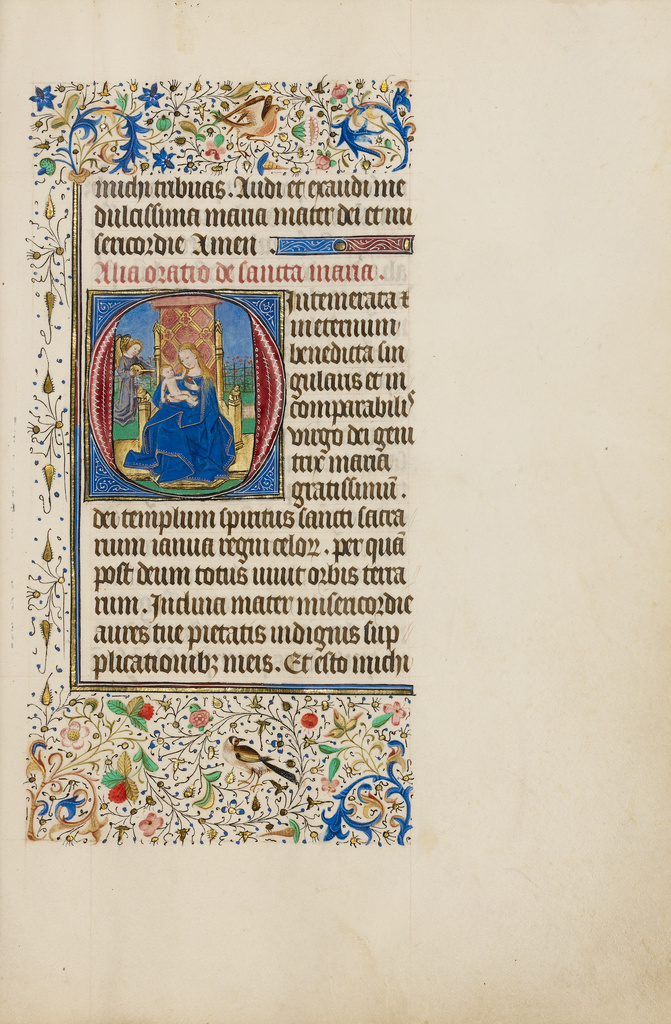 michi tribuas. Audi et exaudi me
dulcissima maria mater dei et mi
sericordie Amen
Alia oratio de sancta maria.
O intemerata ⁊
in eternum
benedicta sin
gularis et in
comparabilis
virgo dei geni
trix maria
gratissimū.
dei templum spiritus sancti sacra
rium ianua regni celoꝝ. per quā
post deum totus vivit orbis terra
rum. Inclina mater misericordie
aures tue pietatis indignis sup
plicationibꝫ meis. Et esto michi